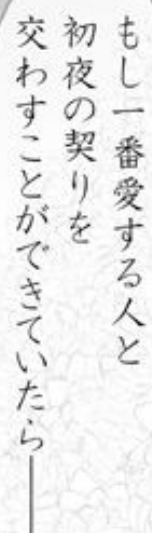 もし一番愛する人と
初夜の契りを
交わすことができていたら――